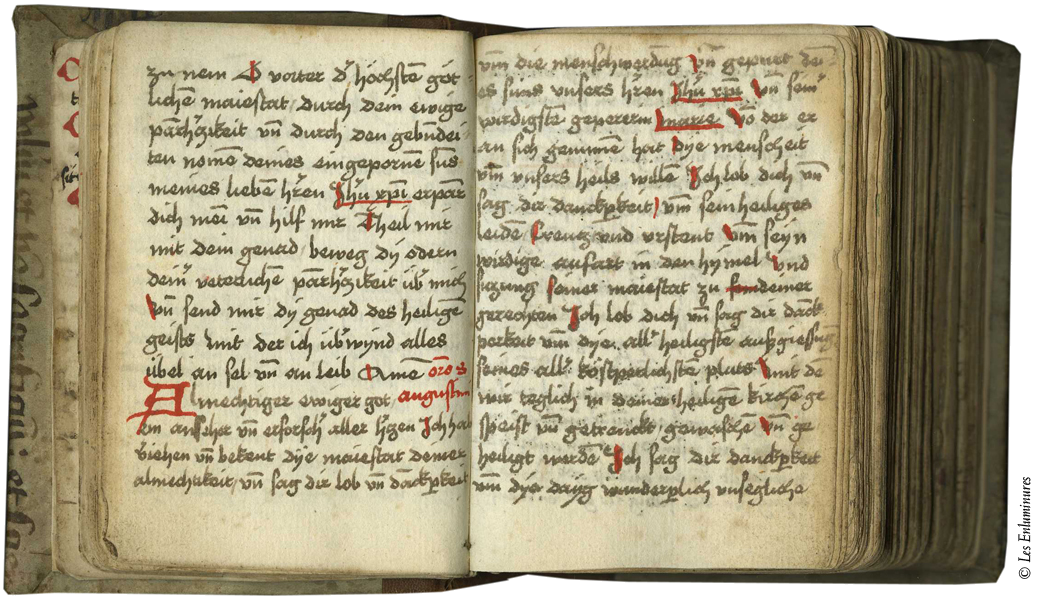 zu nem O vatter d' höchsten göt
lichen maiestat durch dem ewige
parm̄h'zikeit vn̄ durch den gebn̄dei
ten nomen deines eingepornē suns
meines lieben h'ren Jh'u xp̄i erparm
dich mei vn̄ hilf mir Theil mit
mir dein genad beweg dy odern
deinr veterlichē parm̄h'zikeit üb' mich
vn̄ send mir dy genad des heiligē
geists Mit der ich üb'wynd alles
übel an sel vn̄ an leib Amē oro s
Almechtiger ewiger got augustini
ein anseher vn̄ erforsch' aller h'zen Jch hab
viehen vn̄ bekent dye maiestat deiner
almechtikeit vn̄ sag dir lob vn̄ danckperkeit
vm̄ die menschwerdūg vn̄ gepurt dei
es suns vnsers h'ren Jh'u xp̄i Vn̄ seiner
wirdigstē gepererin Marie Vō der er
an sich genūmē hat Dye menscheit
vm̄ vnsers heils willē Jch lob dich vn̄
sag dir danckperkeit vm̄ sein heiliges
leidē Creutz vnd vrstent Vm̄ seyn
wirdige aufart in den hymel Vnd
siczung seiner maiestat zu deiner
gerechten Jch lob dich vn̄ sag dir danck
perkeit vm̄ dye all' heiligstē auszgiessung
seines all' kostperlichstē pluts Mit dē
wir teglich in deiner heiligē kirchē ge
speist vn̄ getrenckt gewaschē Vn̄ ge
heiligt werdē Jch sag dir danckperkeit
vm̄ dyse wunderplich vnsegliche
© Les Enluminures